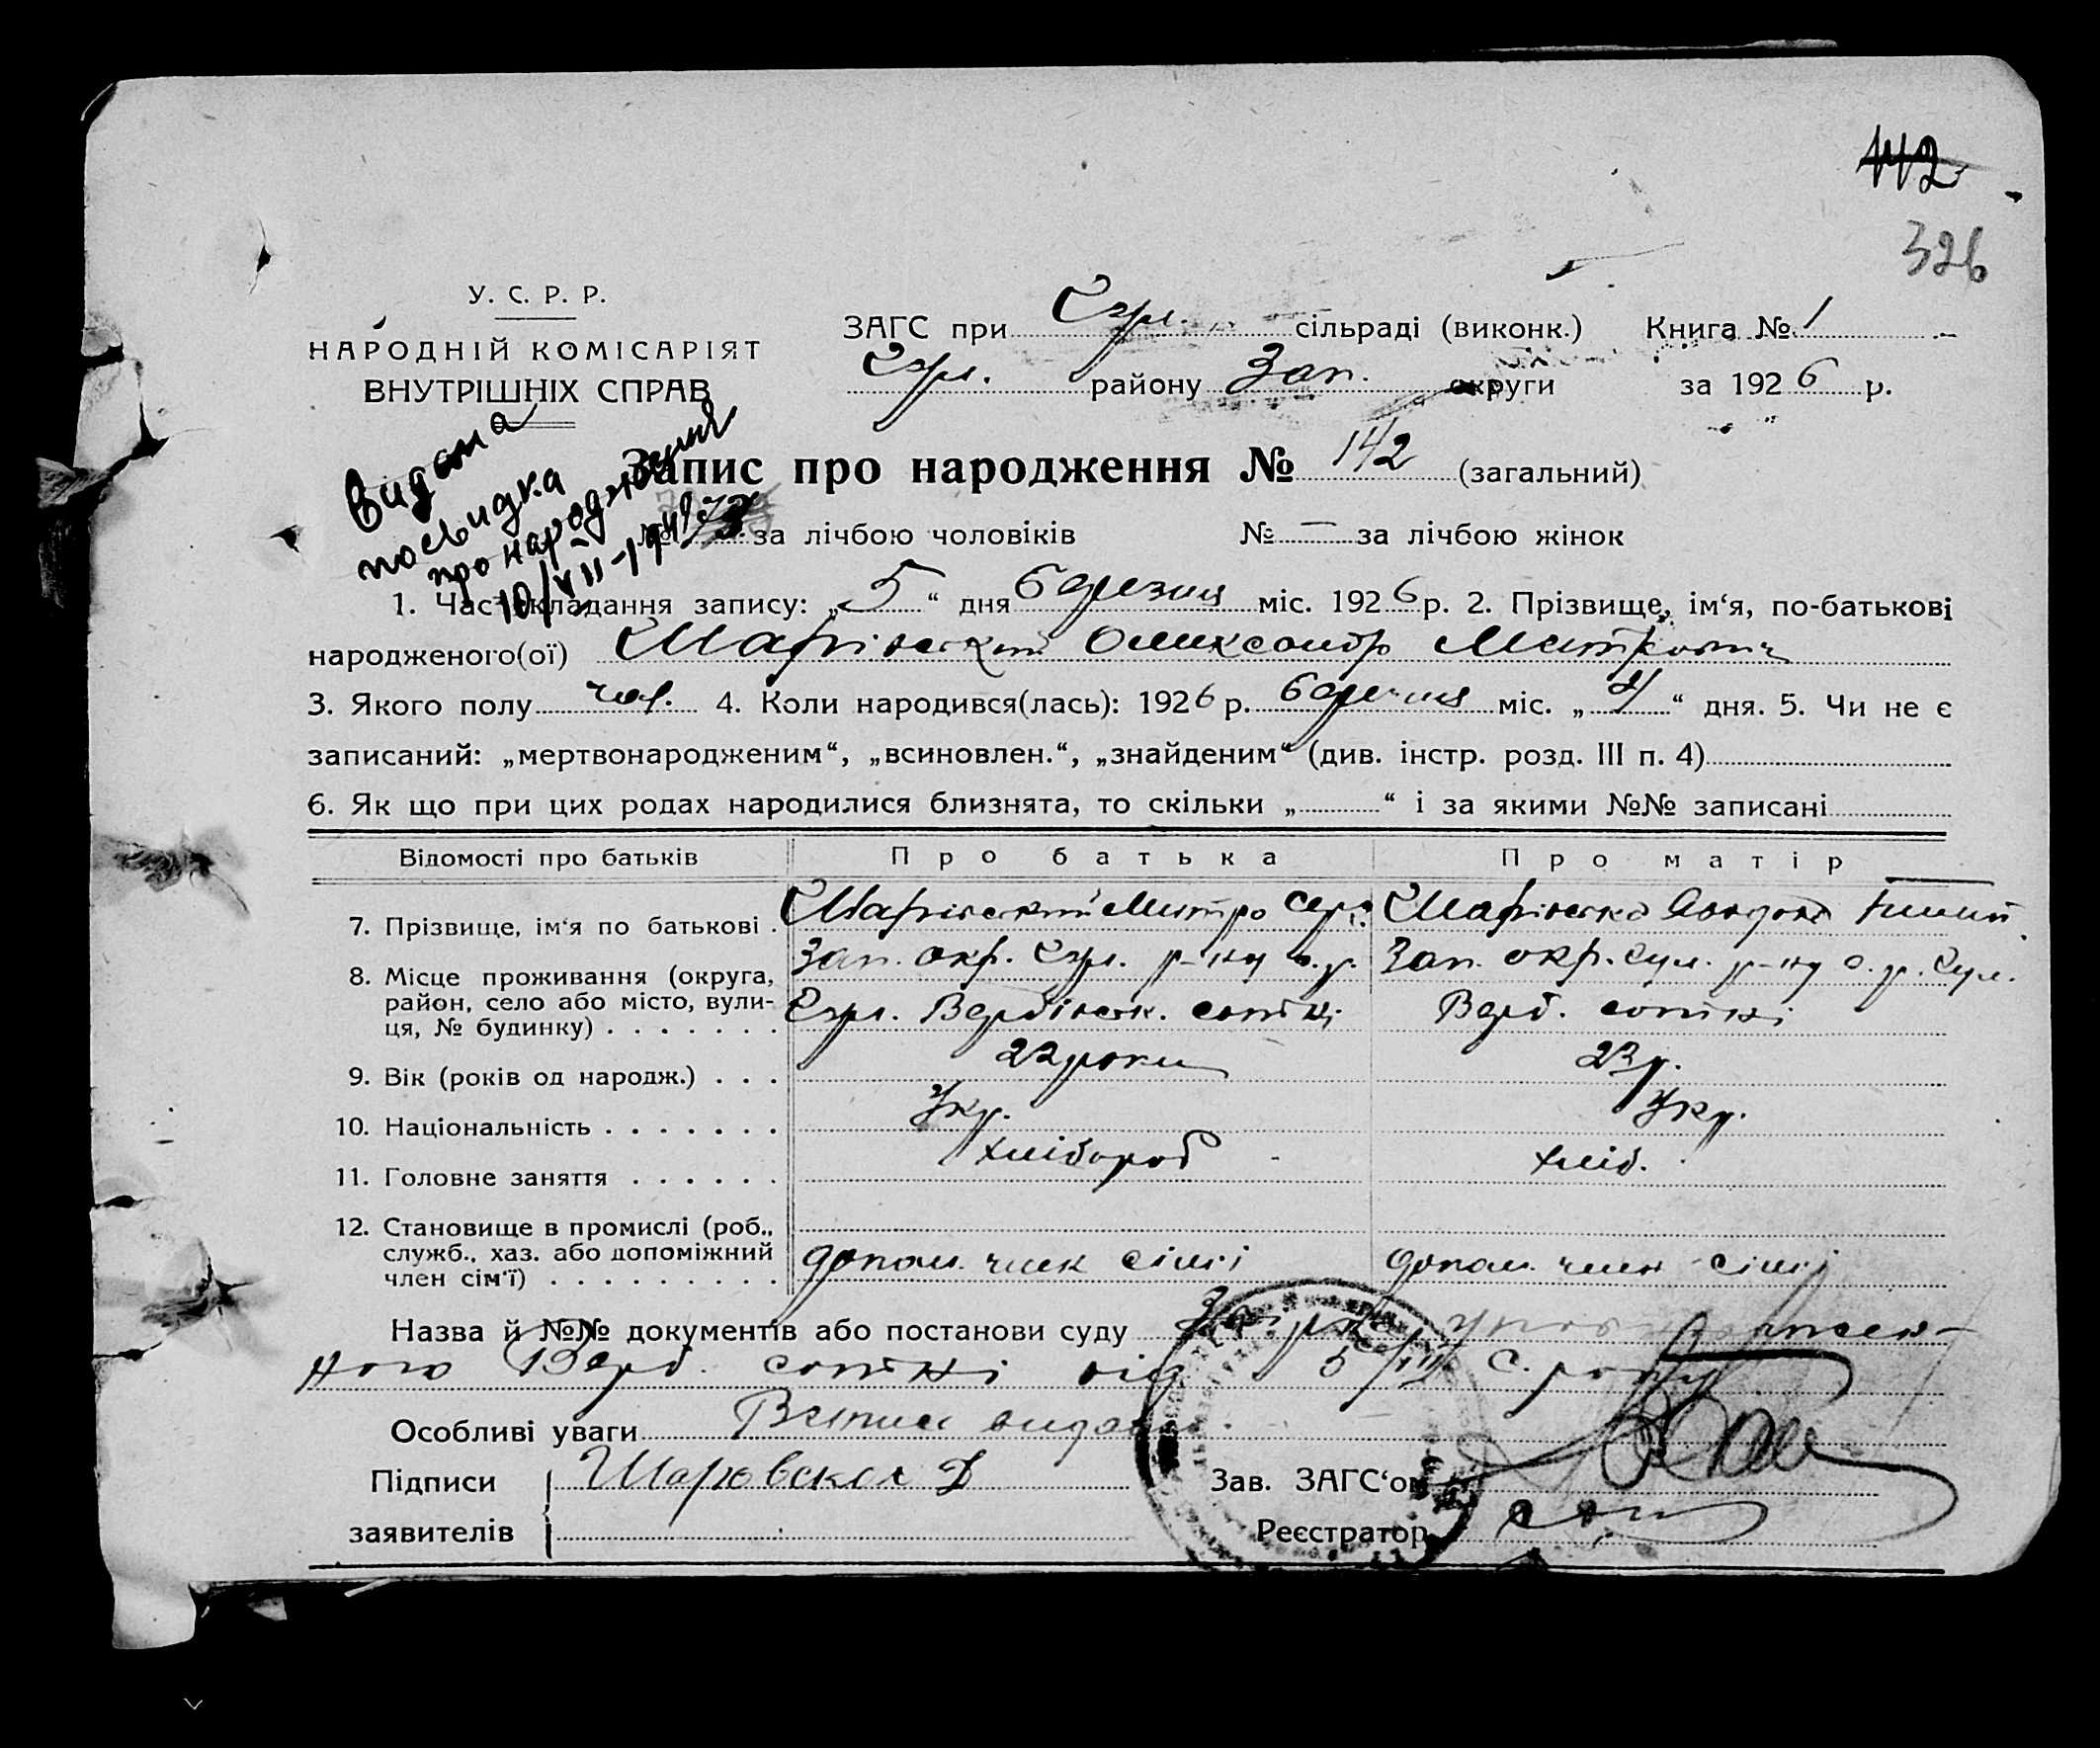 142
326
У. С. Р. Р.
НАРОДНІЙ КОМІСАРІЯТ
ВНУТРІШНІХ СПРАВ
ЗАГС при сільраді (виконк.) Книга № 1
району Зап. округи за 1926 р.
Видана
посвидка
про народження
10/VII-194
Запис про народження № 142 (загальний)
№ 73 за лічбою чоловіків № — за лічбою жінок
1. Час складання запису: „5“ дня березня міс. 1926 р. 2. Прізвище, ім‘я, по-батькові
народженого(ої) Шарівський Олександр Митрович
3. Якого полу чол. 4. Коли народився(лась): 1926 р. березня міс. „4“ дня. 5. Чи не є
записаний: „мертвонародженим“, „всиновлен.“, „знайденим“ (див. інстр. розд. III п. 4)
6. Як що при цих родах народилися близнята, то скільки „ “ і за якими №№ записані
Відомості про батьків Про батька Про матір
7. Прізвище, ім‘я по батькові . Шарівський Митро Шарівська
8. Місце проживання (округа, Зап. окр. р-ну с. р. Зап. окр. р-ну с. р.
район, село або місто, вули- Вербівськ. сотні Верб. сотні
ця, № будинку) . . . . . . .
9. Вік (років од народж.) . . . 22 роки 23 р.
10. Національність . . . . . . . Укр. Укр.
11. Головне заняття . . . . . . хлібороб хліб.
12. Становище в промислі (роб.,
служб., хаз. або допоміжний допом. член сімї допом. член сімї
член сім‘ї) . . . . . . . . .
Назва й №№ документів або постанови суду Довідка уповноважен-
ного Верб. сотні від 5/III с. року
Особливі уваги Витяг видано.
Підписи Шаровская Д Зав. ЗАГС‘ом
заявителів Реєстратор